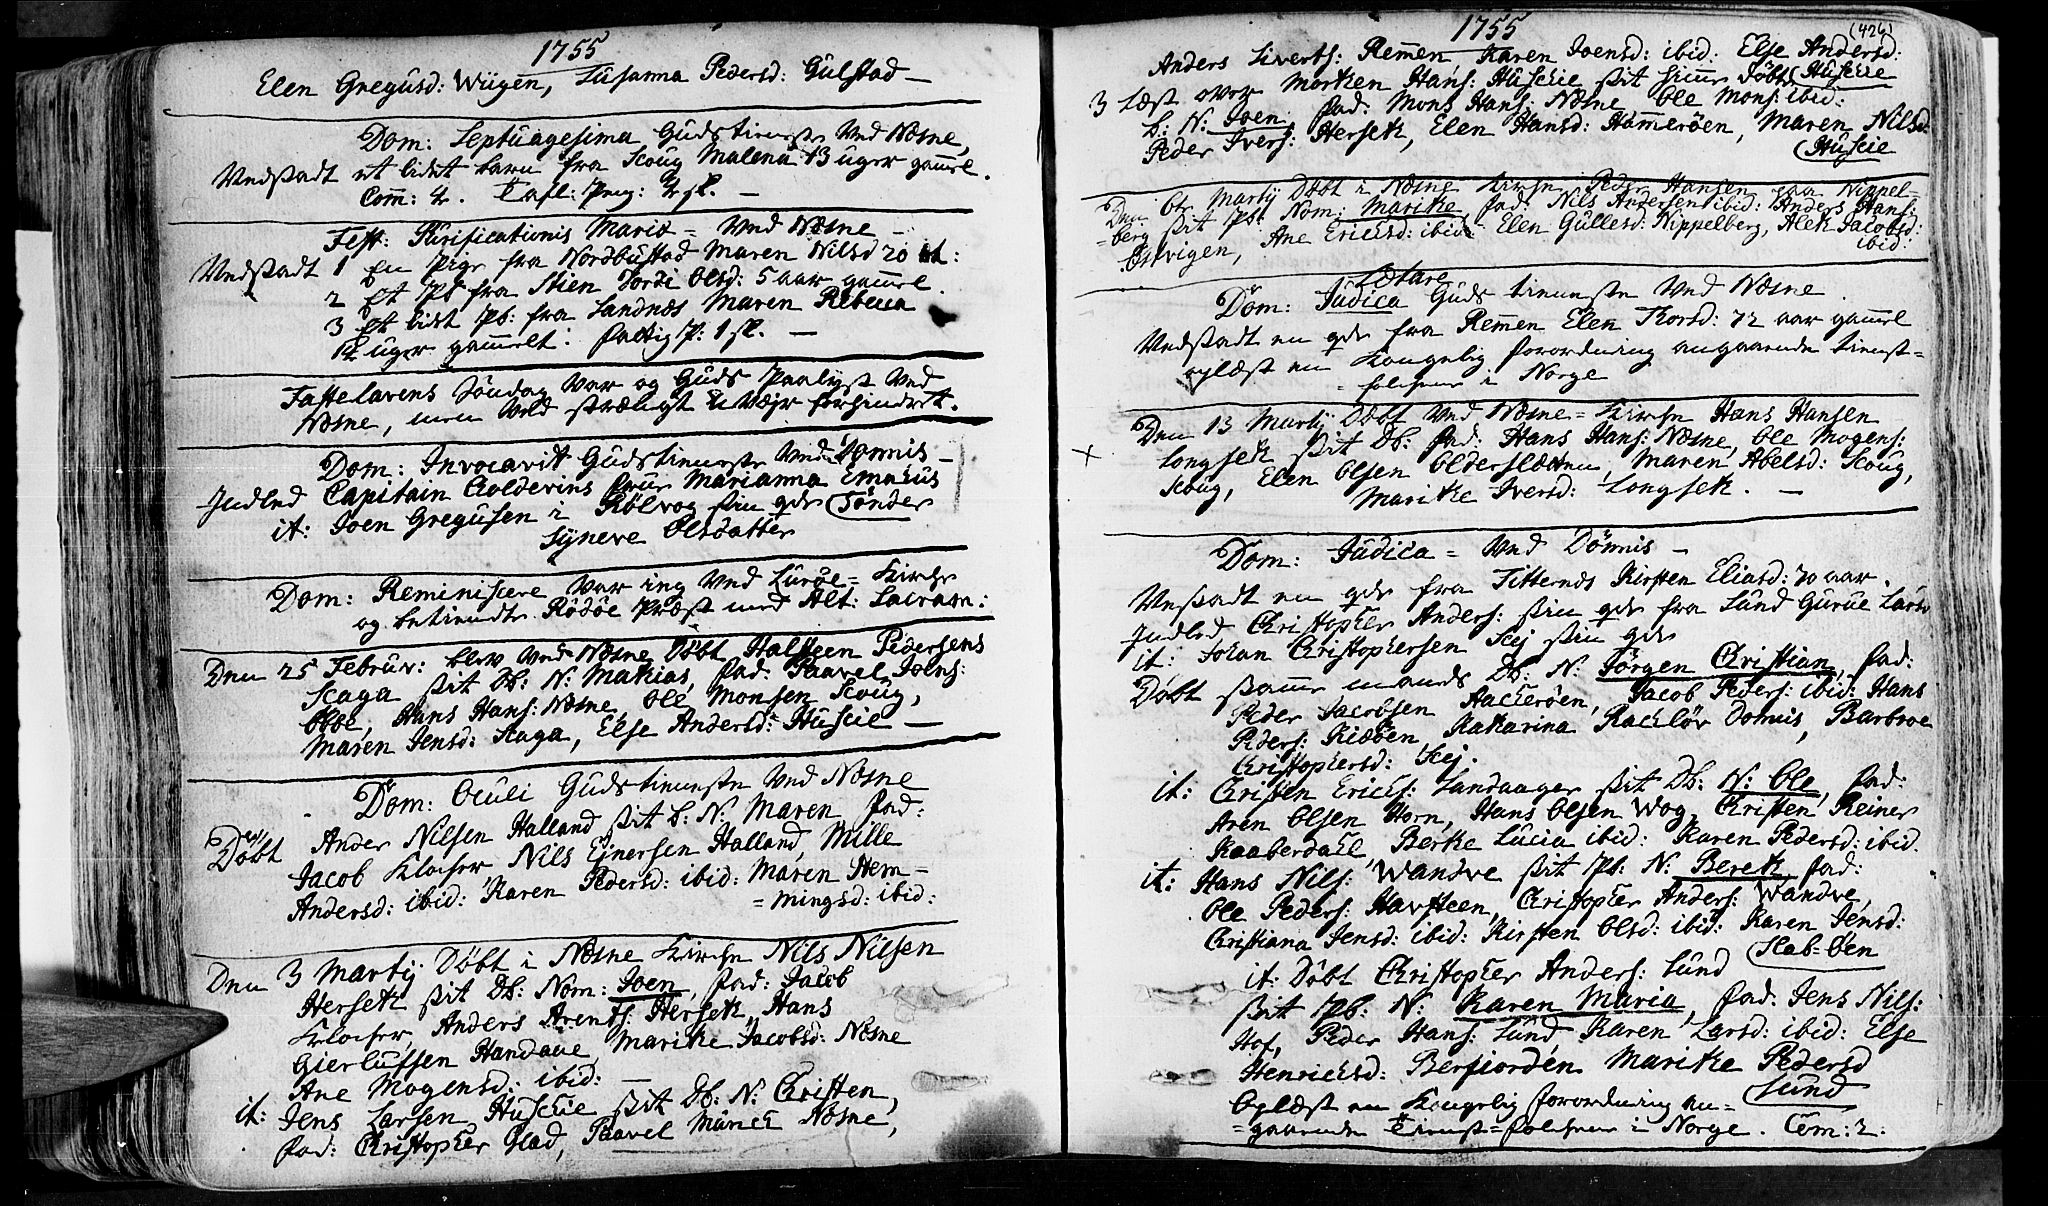 1755
Elen Gregusd: Wiigen, Susanna Pedersd: Gulstad —
Dom: Septuagesima Gudstienneste Ved Næsne,
Vedstadt et lidet barn fra Scoug Malena 13 uger gammel.
Com: 4. Tafl: Peng: 2 sl. —
Fest: Purificationis Mariæ = Ved Næsne —
Vedstadt 1 En Pige fra Nordbustad Maren Nilsd 20
2 Et Pb fra Stien Dordi Olsd: 5 aar gammel.
3 Et lidet Pb: fra Sandnæs Maren Rebecca
12 uger gammelt. fattig P: 1 sl. —
Fastelavens Søndag Var og Guds Paalyst Ved
Næsne, men Veld strængt u Vejr forhindret.
Dom: Invocavit Gudstienneste Ved Dønnis —
Indled Capitain Coldevins frue Marianna Emahus
it: Joen Gregusen i Rølvog sin qde Tønder
Syneve Olsdatter
Dom: Reminiscere Var ing Ved Lurøe = Kirche
og betiendte Rødøe Præst med Alt: Sacram:
Den 25 Februr: blev Ved Næsne Døbt Halsteen Pedersens
Scaga sit Db: N: Mathias, fad: Paavel Joens:
Ebbe, Hans Hans: Næsne, Ole Monsen Scoug,
Maren Jensd: Scaga, Else Andersd: Huscie —
Dom: Oculi Gudstienneste Ved Næsne
Døbt Ander Nilsen Halland sit b. N: Maren fad:
Jacob Klocher Nils Ejnersen Halland, Mille
Andersd: ibid: Karen Pedersd: ibid: Maren Hem-
= mingsd: ibid:
Den 3 Martij Døbt i Næsne Kirche Nils Nilsen
Herseth sit Db: Nom: Joen, fad: Jacob
Klocher, Anders Arents: Herseth, Hans
Gierlufsen Handaae, Marithe Jacobsd: Næsne
Ane Mogensd: ibid: —
it: Jens Larsen Huscie sit Db: N: Christen,
fad: Christopher Flad, Paavel Münch Næsne,
1755
(426)
Anders Siverts: Remen Karen Joensd: ibid: Else Andersd:
3 Læst over Morten Hans: Huscie sit Døbt Huscie
b: N: Joen, fad: Mons Hans: Næsne Ole Mons: ibid:
Peder Ivers: Herseth, Elen Hansd: Hammerøen, Maren Nilsd:
Huscie
Den 6te Martij Døbt i Næsne Kirche Peder Hansen paa Nippel=
=berg sit Pb: Nom: Marithe fad: Nils Andersen ibid: Anders Hans:
Østvigen, Ane Ericksd: ibid: Elen Gullesd: Nippelberg, Aleth Jacobsd:
ibid:
Lætare
Dom: Judica Guds tienneste Ved Næsne.
Vedstadt en qde fra Remen Elen Thorsd: 72 aar gammel
oplæst en Kongelig forordning angaaende tienst=
= folchene i Norge
Den 13 Martij Døbt Ved Næsne = Kirche Hans Hansen
Longseth sit Db: fad: Hans Hans: Næsne, Ole Mogens:
Scoug, Elen Olsen Olderslætten, Maren Abelsd: Scoug,
Marithe Iversd: Longseth. —
Dom: Judica = Ved Dønnis —
Vestadt en qde fra Titternæs Kirsten Eliasd: 70 aar.
Indled Christopher Anders: sin qde fra Sund Gurue Larsd
it: Johan Christophersen Scej sin qde
Døbt samme mands Db: N: Jørgen Christian, fad:
Peder Jacobsen Aacherøen, Jacob Peders: ibid: Hans
Peders: Kidøen, Katharina Rachløv Dønnis, Barbroe
Christophersd: Scej.
it: Christen Ericks: Sandaager sit Db: N: Ole, fad:
Aren Olsen Horn, Hans Olsen Wog, Christen Reiner
Kaaberdahl, Berthe Lucia ibid: Karen Pedersd: ibid.
it: Hans Nils: Wandve sit Pb: N: Bereth fad:
Ole Peders: Havsteen, Christopher Anders: Wandve,
Christiana Jensd: ibid: Kirsten Olsd: ibid: Karen Jensd:
Slab-øen
it: Døbt Christopher Anders: Sund
sit Pb: N: Karen Maria, fad: Jens Nils:
Hof, Peder Hans: Sund, Karen Larsd: ibid: Else
Henrichsd: Berfiorden Marithe Pedersd
Sund
Oplæst en Kongelig forordning an=
=gaaende Tienst=folchene i Norge. Com: 2.